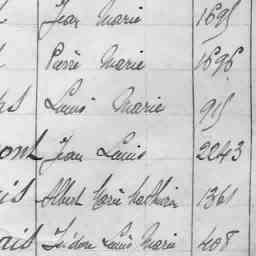 Jean Marie 1695
Pierre Marie 1696
Louis Marie 915
ont Jean Louis 2243
is Albert Marie Mathurin 1361
ais Isidore Louis Marie 408